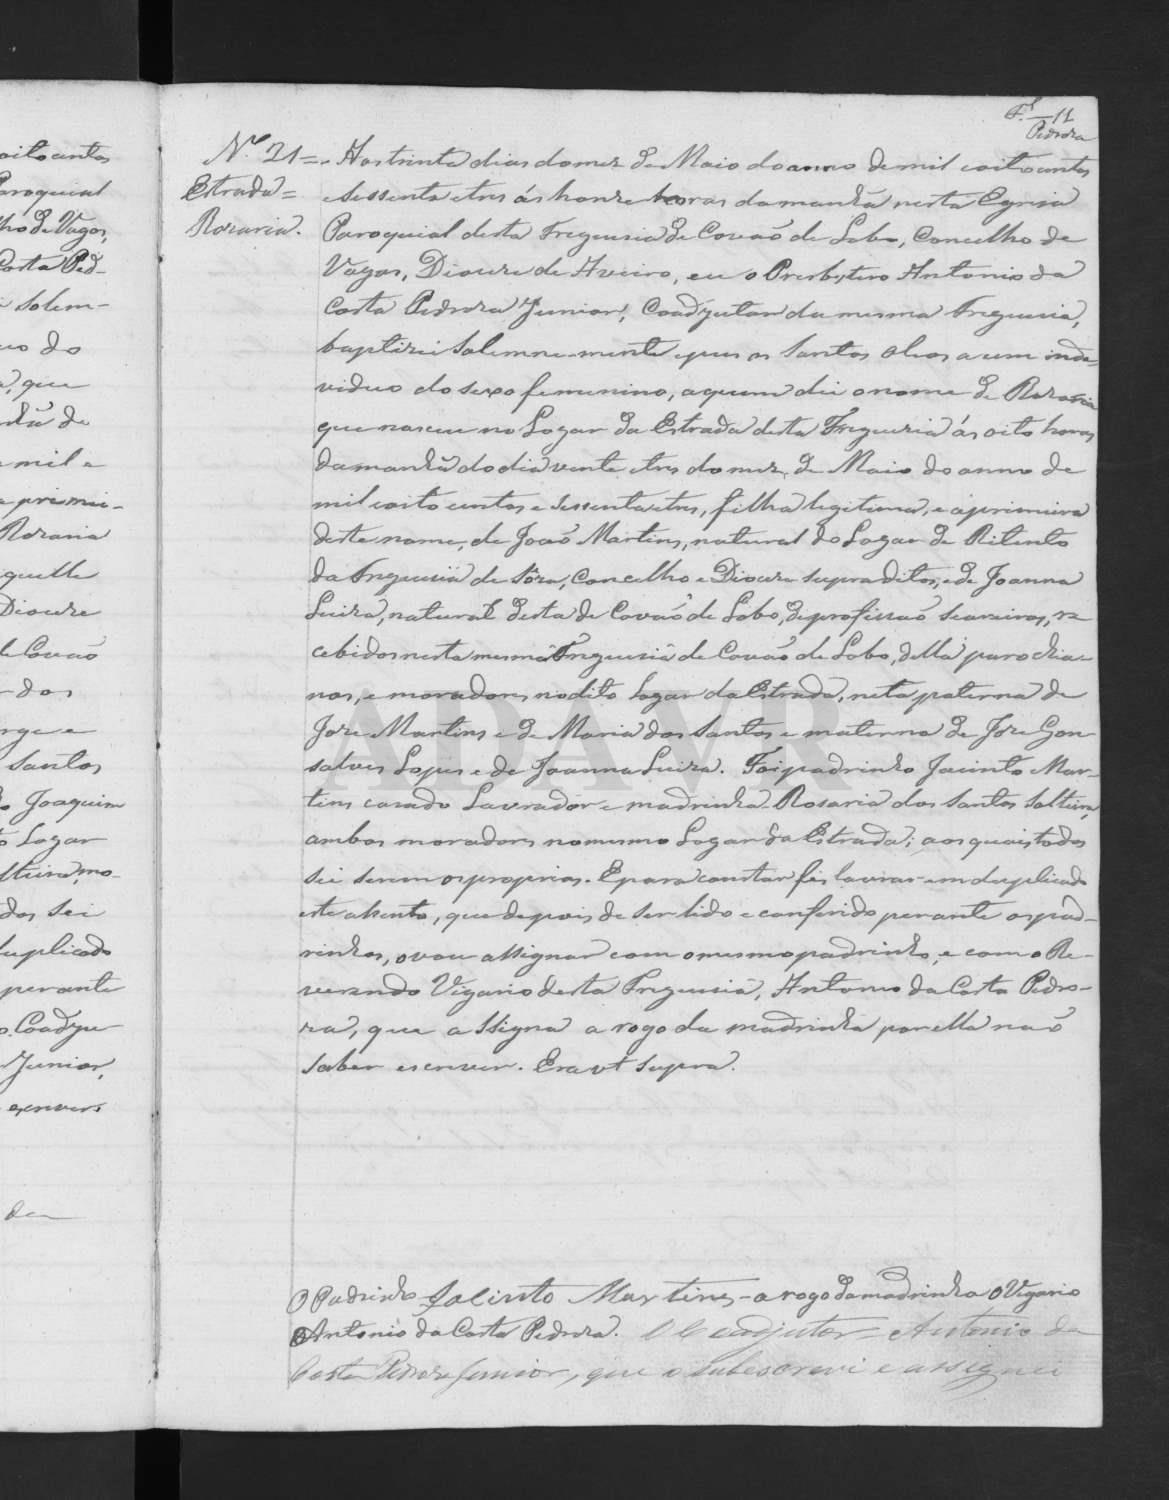 oito centos
Paroquial
lho de Vagos,
Costa Ped-
i solem-
uo do
a, que
nhã de
mil e
a primei-
Rozaria
quelle
Diocese
de Covão
dos
rge e
santos
o Joaquim
o Logar
lteira, mo-
dos sei
duplicado
perante
o Coadju-
Junior,
escrever
da
Fl. 11
Pedroza
N.º 21 = Aos trinta dias do mez de Maio do anno de mil e oito centos
Estrada = e sessenta e tres ás honze horas da manhã nesta Egreja
Rozaria. Paroquial desta Freguesia de Covão de Lobo, Concelho de
Vagos, Diocese de Aveiro, eu o Presbytero Antonio da
Costa Pedroza Junior, Coadjutor da mesma Freguesia,
baptizei solemne-mente e pus os Santos Oleos a um indi-
viduo do sexo femenino, a quem dei o nome de Rozaria
que nasceu no Logar da Estrada desta Freguezia ás oito horas
da manhã do dia vente e tres do mez de Maio do anno de
mil e oito centos e sessenta e tres, filha legitima, e a primeira
deste nome, de João Martins, natural do Logar de Ritento
da Freguesia de Sôza, Concelho e Diocese supraditos, e de Joanna
Luiza, natural desta de Covão de Lobo, de profissão seareiros, re-
cebidos nesta mesma Freguesia de Covão de Lobo, della parochia-
nos, e moradores no dito Logar da Estrada, neta paterna de
Joze Martins e de Maria dos Santos e materna de Joze Gon
salves Lopes e de Joanna Luiza. Foi padrinho Jacinto Mar-
tins casado Lavrador e madrinha Rosaria dos Santos solteira,
ambos moradores no mesmo Logar da Estrada; aos quais todos
sei serem os proprios. E para constar fis lavrar em duplicado
este assento, que depois de ser lido e conferido perante os pad-
rinhos, o vou assignar com o mesmo padrinho, e com o Re-
verendo Vigario desta Freguesia, Antonio da Costa Pedro-
za, que assigna a rogo da madrinha por ella não
saber escrever. Era ut supra.
O Padrinho Jacinto Martins - a rogo da madrinha O Vigario
Antonio da Costa Pedroza. O Coadjutor = Antonio da
Costa Pedroza Junior, que o subescrevi e assignei
ADAVR